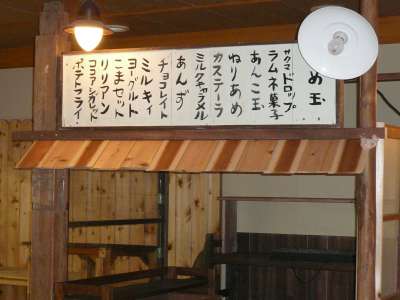 め玉
サクマドロップ
ラムネ菓子
あんこ玉
ねりあめ
カステーラ
ミルクキャラメル
あんず
チョコレイト
ミルキィ
ヨーグルト
こまセット
リリアーン
ココアシガレット
ポテトフライ